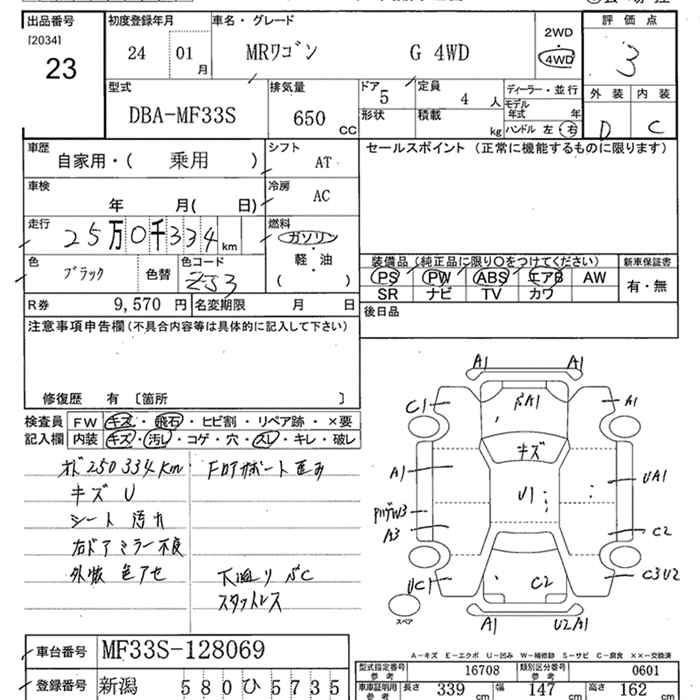 出品番号 初度登録年月 車名・グレード 評価点
[2034]
23
24 01月 MRワゴン G 4WD 2WD
4WD
3
型式 排気量 ドア 5 定員 4人 ディーラー・並行 外装 内装
モデル年式 年
DBA-MF33S 650 CC 形状 積載 kg ハンドル 左・右 D C
車歴 シフト セールスポイント (正常に機能するものに限ります)
自家用・( 乗用 ) AT
車検 冷房
年 月( 日) AC
走行 燃料
25万0千334km ガソリン
軽・油
( )
装備品 (純正品に限り○をつけてください) 新車保証書
色 色コード PS PW ABS エアB AW 有・無
ブラック 色替 ZJ3 SR ナビ TV カワ
R券 9,570円 名変期限 月 日 後日品
注意事項申告欄 (不具合内容等は具体的に記入して下さい)
修復歴 有 [箇所 ]
検査員 FW キズ・飛石・ヒビ割・リペア跡・×要
記入欄 内装 キズ・汚し・コゲ・穴・スレ・キレ・破し
250334km
キズ U
シート 汚れ
右ドアミラー不良
外装 色アセ 下廻り
スタットレス
A1 A1
C1 A1 A1
キズ
A1 U1 UA1
W3
A3 C2
UC1 C2 C3U2
スペア
A1 U2A1
A-キズ E-エクボ U-凹み W-補修跡 S-サビ C-腐食 XX-交換済
車台番号 MF33S-128069
型式指定番号 参考 16708 類別区分番号 参考 0601
登録番号 新潟 580 ひ 5735
車庫証明用 参考 長さ 339cm 幅 147cm 高さ 162cm